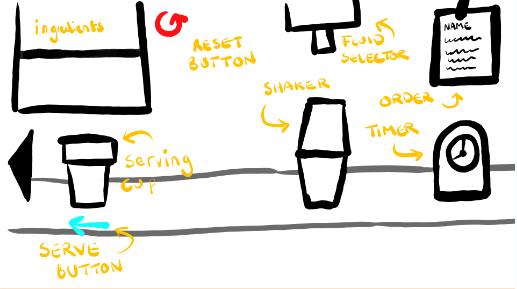 ingredients
RESET
BUTTON
FLUID
SELECTOR
NAME
SHAKER
ORDER
TIMER
serving
cup
SERVE
BUTTON